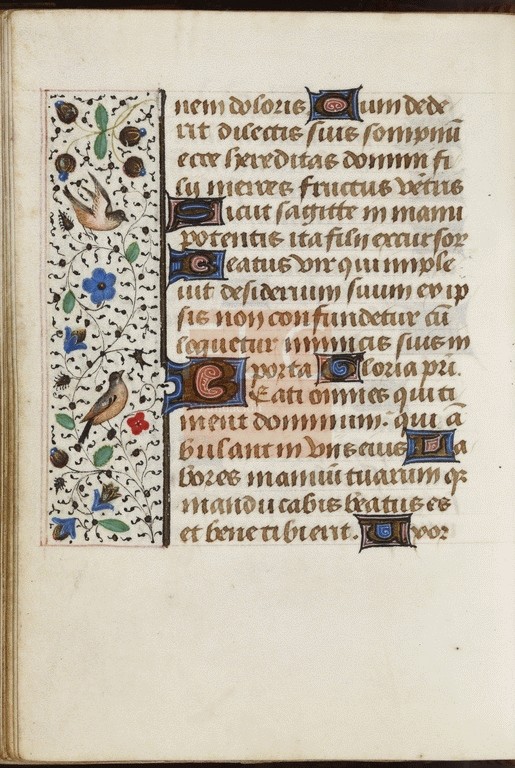 nem doloris Cum dede
rit dilectis suis sompnū
ecce hereditas domini fi
lij merces fructus vētris
Sicut sagitte in manu
potentis ita filij excussor
Beatus vir qui imple
uit desiderium suum ex ip
sis non confundetur cū
loquetur inimicis suis in
porta Gloria pri.
Beati omnes qui ti
ment dominum. qui ā
bulant in vijs eius La
bores manuū tuarum qr
manducabis beatus es
et bene tibi erit. Uxor